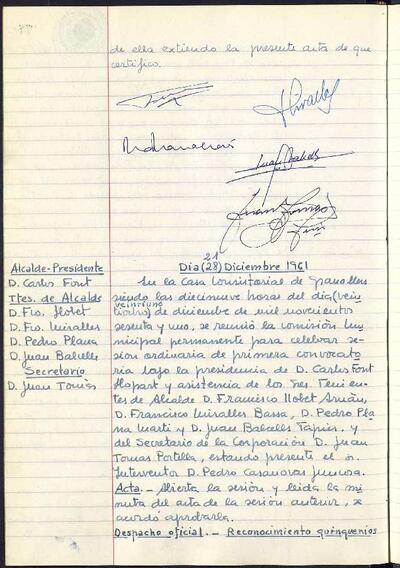 de ella extiendo la presente acta de que
certifico.
Alcalde-Presidente
D. Carlos Font
Ttes. de Alcalde
D. Fco. Llobet
D. Fco. Miralles
D. Pedro Plana
D. Juan Baulells
Secretario
D. Juan Tomàs
21
Dia (28) Diciembre 1961
En la Casa Consistorial de Granollers
siendo las diecinueve horas del dia (vein
veintiuno
tiocho) de diciembre de mil novecientos
sesenta y uno, se reunió la comisión Mu
nicipal permanente para celebrar se
sión ordinaria de primera convocato
ria bajo la presidencia de D. Carlos Font
Llopart y asistencia de los Sres. Tenien
tes de Alcalde D. Francisco Llobet Arnán,
D. Francisco Miralles Bassa, D. Pedro Pla
na Martí y D. Juan Baulells Tapias, y
del Secretario de la Corporación D. Juan
Tomas Potilla, estando presente el Sr.
Interventor D. Pedro Casanovas
Acta. - Abierta la sesión y leida la mi
nuta del acta de la sesión anterior, se
acordó aprobarla.
Despacho oficial. - Reconocimiento quinquenios